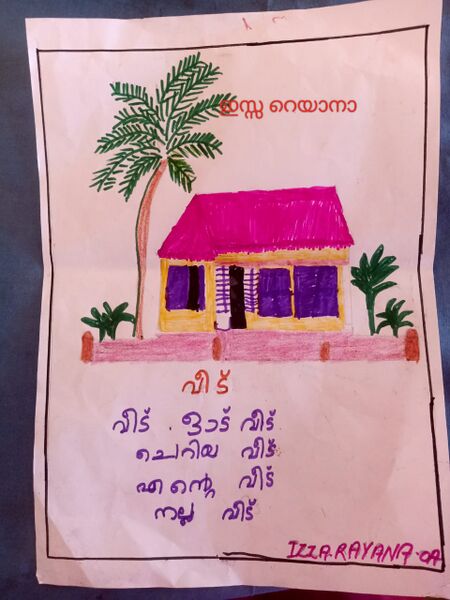 ഇസ്സ റെയാനാ
വീട്
വീട് . ഓട് വീട്
ചെറിയ വീട്
എന്റെ വീട്
നല്ല വീട്
IZZA.RAYANA.